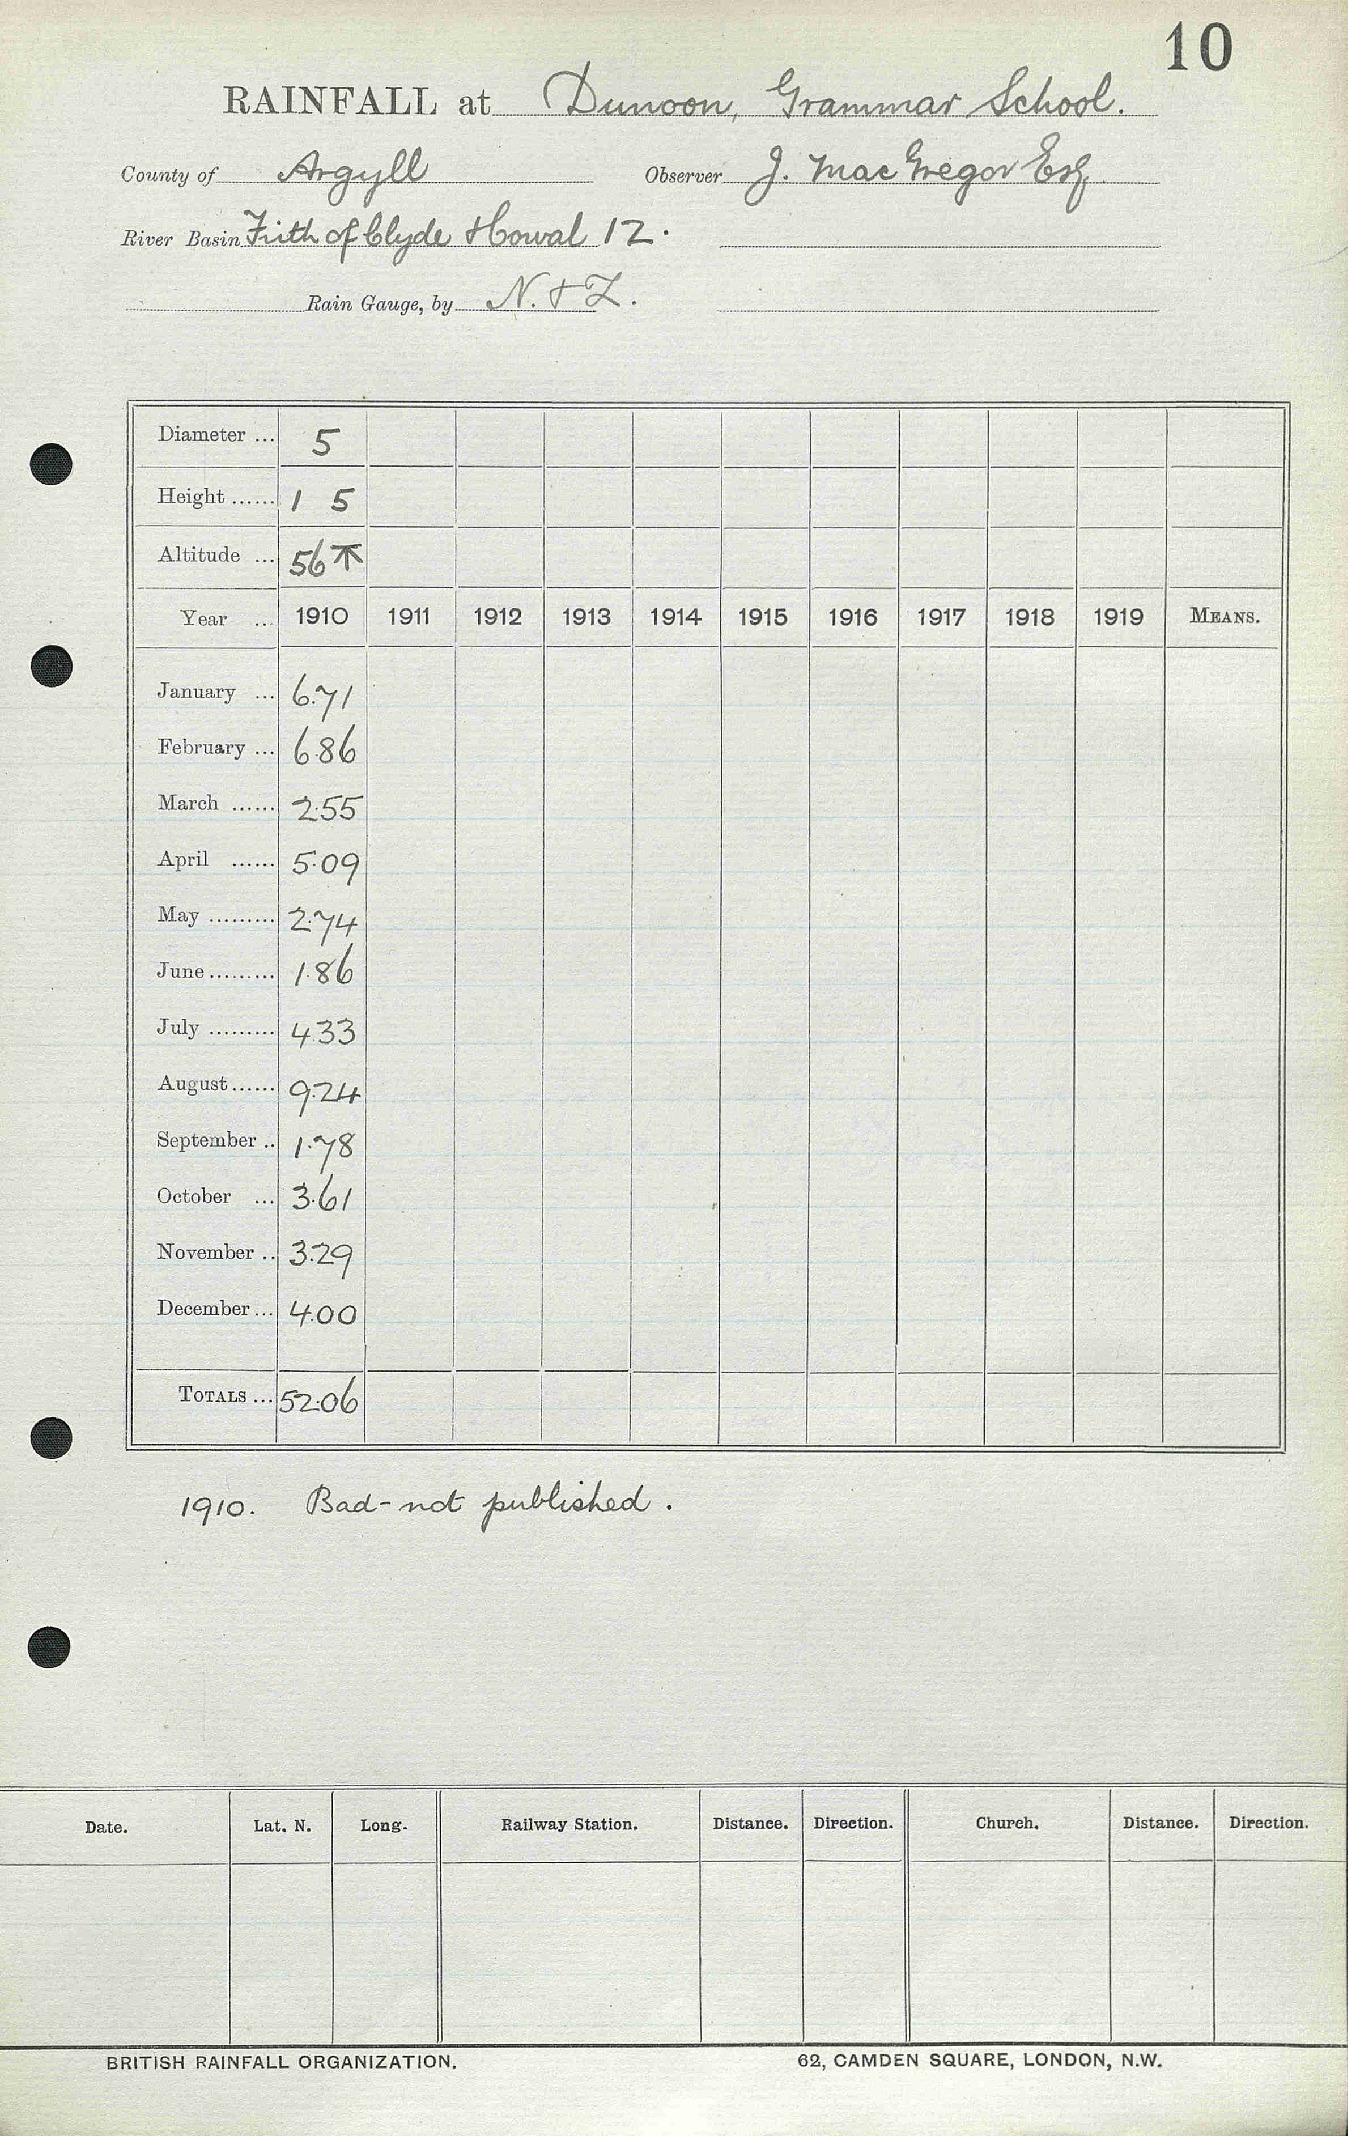 10
RAINFALL at Dunoon, Grammar School.
County of Argyll Observer J. MacGregor Esq
River Basin Frith of Clyde & Cowal 12.
Rain Gauge, by N. & Z.
Diameter ... 5
Height ...... 1 5
Altitude ... 56
Year ... 1910 1911 1912 1913 1914 1915 1916 1917 1918 1919 MEANS.
January ... 6.71
February ... 6.86
March ...... 2.55
April ...... 5.09
May ......... 2.74
June ......... 1.86
July ......... 4.33
August ...... 9.24
September .. 1.78
October ... 3.61
November .. 3.29
December ... 4.00
TOTALS ... 52.06
1910. Bad - not published.
Date. Lat. N. Long. Railway Station. Distance. Direction. Church. Distance. Direction.
BRITISH RAINFALL ORGANIZATION. 62, CAMDEN SQUARE, LONDON, N.W.